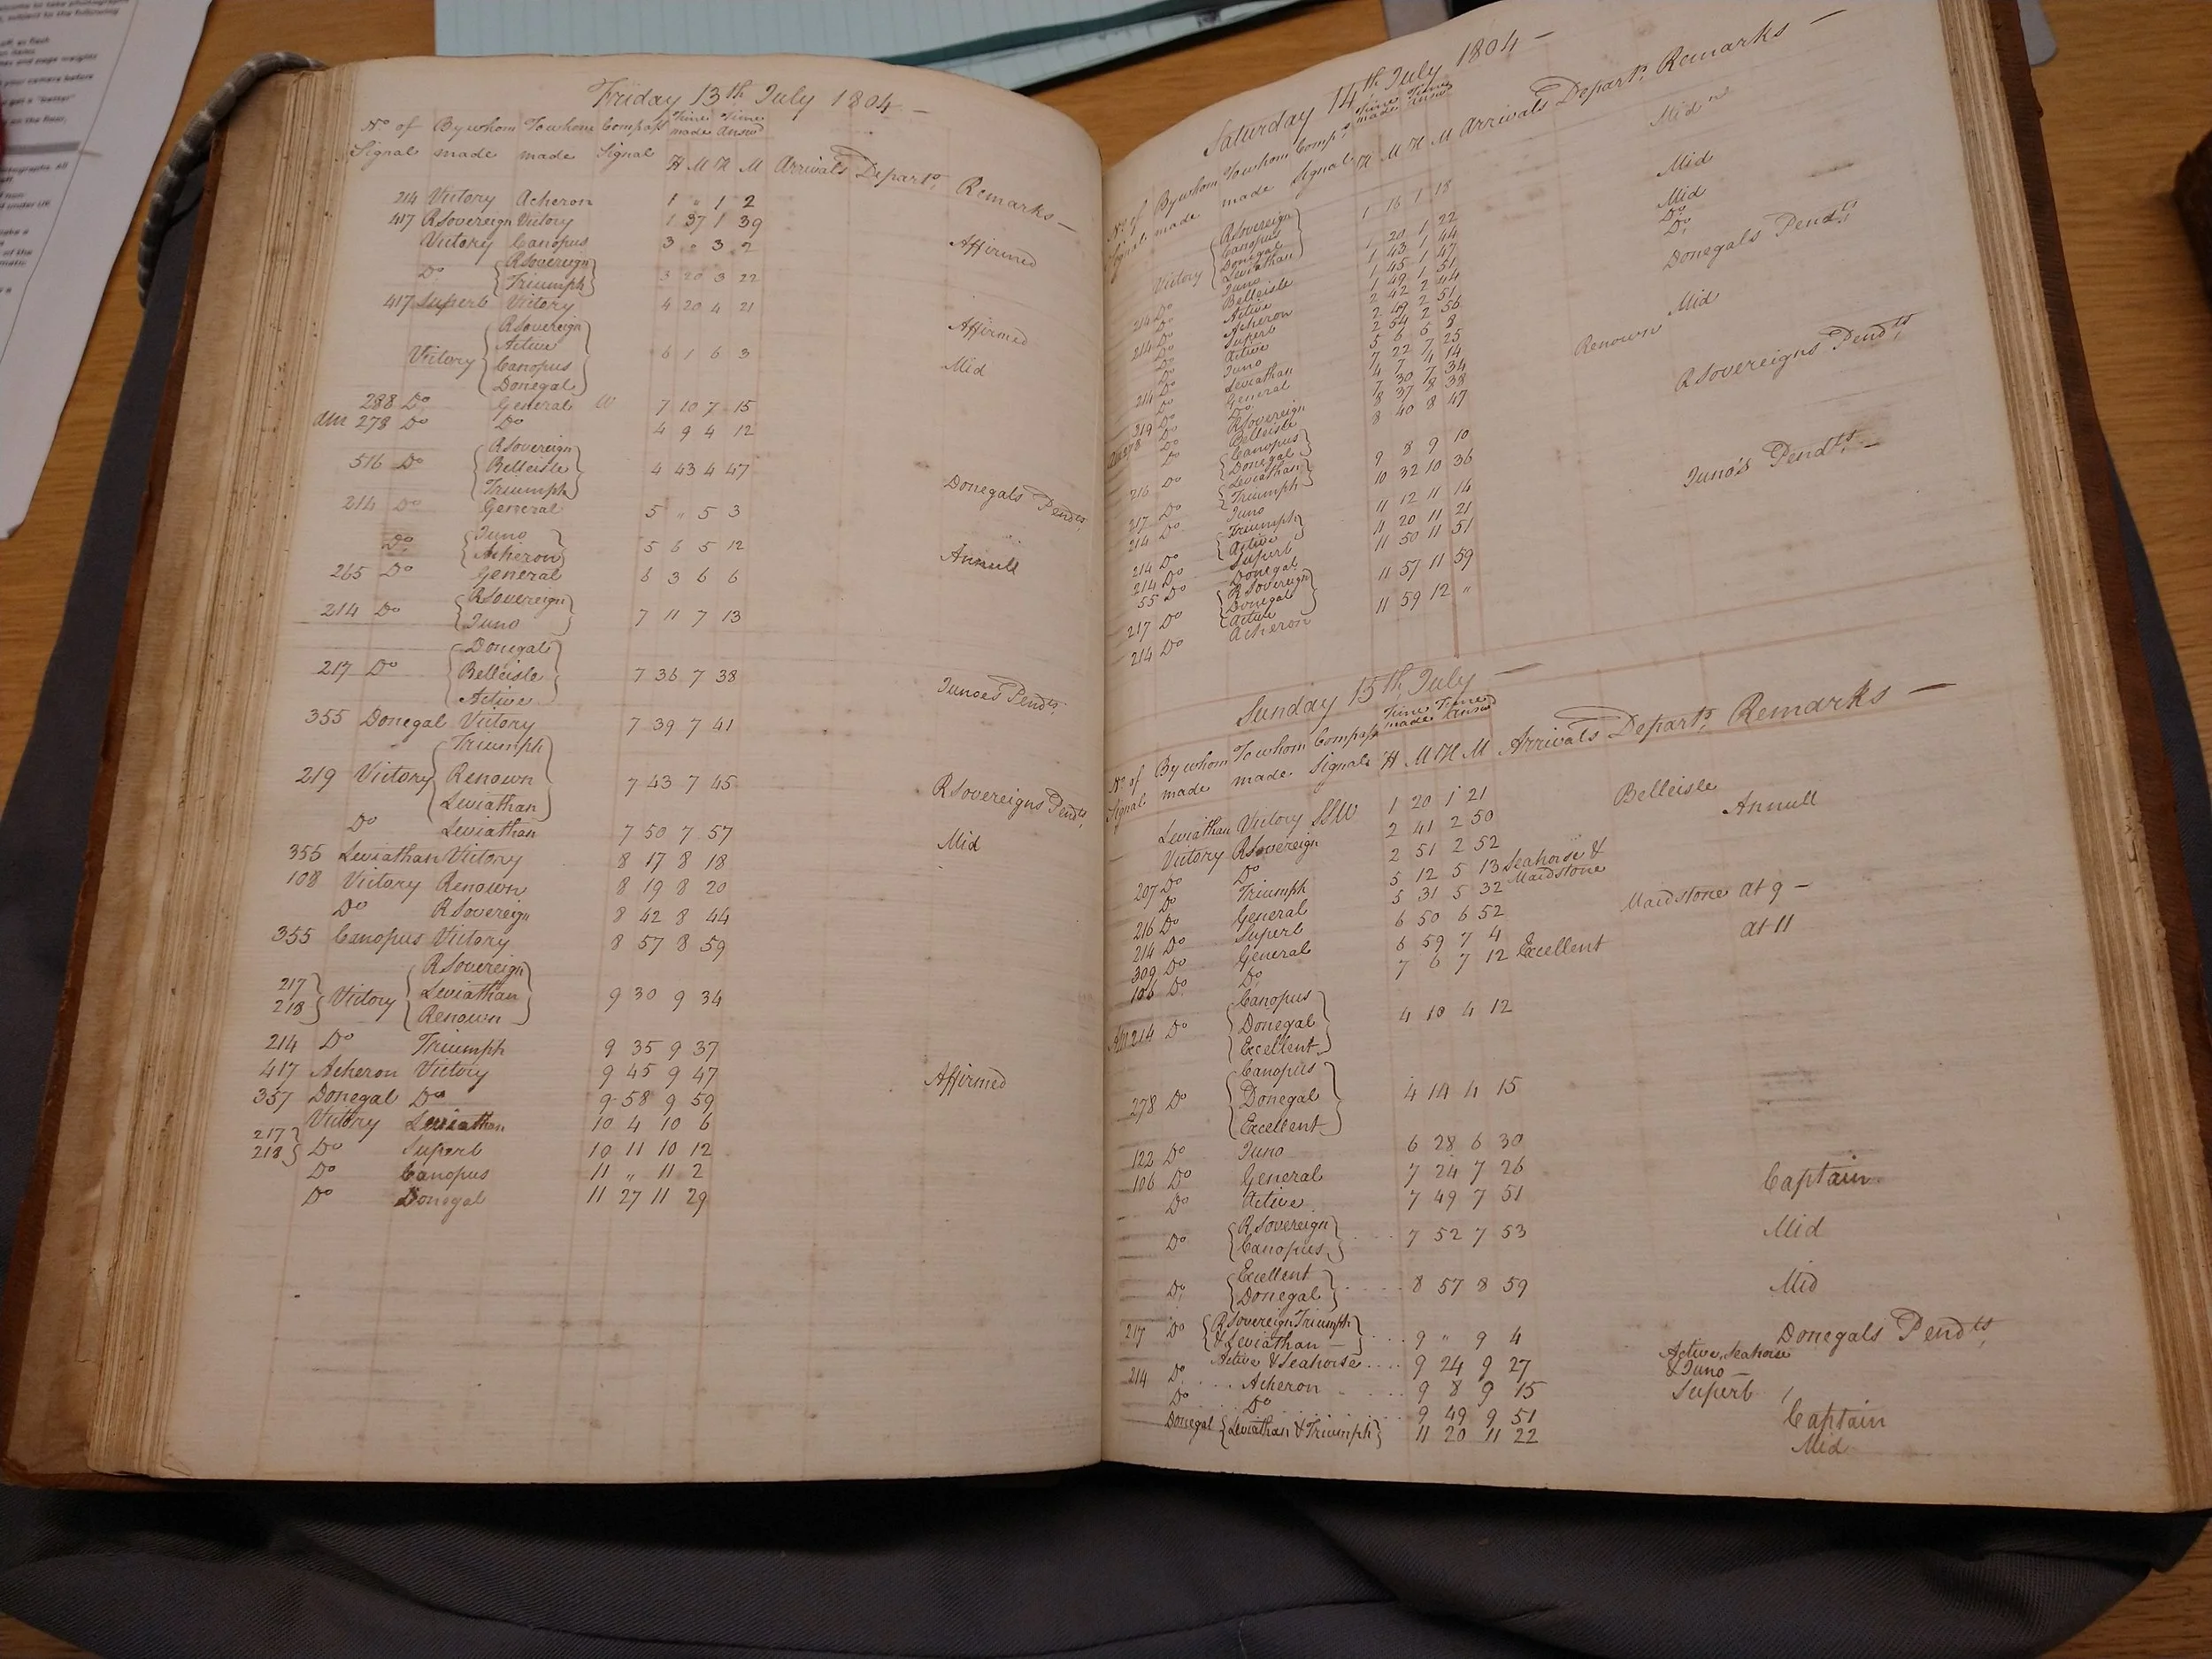 Friday 13th July 1804 —
No of By whom To whom Compass Time Time
Signal made made Signal made Answd
H M H M Arrivals Departs Remarks —
214 Victory Acheron 1 " 1 2
417 RSovereign Victory 1 37 1 39 Affirmed
Victory Canopus 3 " 3 2
Do { RSovereign
Triumph } 3 20 3 22
417 Superb Victory 4 20 4 21 Affirmed
Victory { RSovereign
Active
Canopus
Donegal } 6 1 6 3 Mid
288 Do General W 7 10 7 15
AM 278 Do Do 4 9 4 12
516 Do { RSovereign
Belleisle
Triumph } 4 43 4 47 Donegals Pendts
214 Do General 5 " 5 3
Do { Juno
Acheron } 5 6 5 12 Annull
265 Do General 6 3 6 6
214 Do { RSovereign
Juno } 7 11 7 13
217 Do { Donegal
Belleisle
Active } 7 36 7 38 Junoes Pendts
355 Donegal Victory 7 39 7 41
219 Victory { Triumph
Renown
Leviathan } 7 43 7 45 RSovereigns Pendts
Do Leviathan 7 50 7 57 Mid
355 Leviathan Victory 8 17 8 18
108 Victory Renown 8 19 8 20
Do RSovereign 8 42 8 44
355 Canopus Victory 8 57 8 59
217
218 } Victory { RSovereign
Leviathan
Renown } 9 30 9 34
214 Do Triumph 9 35 9 37
417 Acheron Victory 9 45 9 47 Affirmed
357 Donegal Do 9 58 9 59
Victory Leviathan 10 4 10 6
217
218 } Do Superb 10 11 10 12
Do Canopus 11 " 11 2
Do Donegal 11 27 11 29
Saturday 14th July 1804 —
No of By whom To whom Comps Time Time
Signal made made Signal made Answd
H M H M Arrivals Departs Remarks —
Victory { RSovereign
Canopus
Donegal
Leviathan } 1 16 1 18 Mid
214 Do Juno 1 20 1 22
Do Belleisle 1 43 1 44 Mid
Do Active 1 45 1 47 Mid
214 Do Acheron 1 49 1 51 Do
Do Superb 2 42 2 44 Do
Do Active 2 49 2 51 Donegals Pendts
Do Juno 2 54 2 56
214 Do Leviathan 5 6 5 8 Mid
Do General 7 22 7 25 Renown
319 Do Do 4 7 4 14
AM 278 Do RSovereign 7 30 7 34
Do Belleisle 8 37 8 38 RSovereigns Pendts
216 Do { Canopus
Donegal } 8 40 8 47
217 Do { Leviathan
Triumph } 9 8 9 10
214 Do Juno 10 32 10 36
214 Do { Triumph
Active } 11 12 11 14 Juno's Pendts —
214 Do Superb 11 20 11 21
55 Do Donegal 11 50 11 51
217 Do { RSovereign
Donegal
Active } 11 57 11 59
214 Do Acheron 11 59 12 "
Sunday 15th July —
No of By whom To whom Compass Time Time
Signal made made Signals made Answd
H M H M Arrivals Departs Remarks —
Leviathan Victory SSW 1 20 1 21 Belleisle
Victory RSovereign 2 41 2 50 Annull
207 Do Do 2 51 2 52
Do Triumph 5 12 5 13 Seahorse &
Maidstone
216 Do General 5 31 5 32
214 Do Superb 6 50 6 52 Maidstone at 9 —
309 Do General 6 59 7 4 at 11
106 Do Do 7 6 7 12 Excellent
AM 214 Do { Canopus
Donegal
Excellent } 4 10 4 12
278 Do { Canopus
Donegal
Excellent } 4 14 4 15
122 Do Juno 6 28 6 30
106 Do General 7 24 7 26
Do Active 7 49 7 51 Captain
Do { RSovereign
Canopus } 7 52 7 53 Mid
Do { Excellent
Donegal } 8 57 8 59 Mid
217 Do { RSovereign Triumph
& Leviathan — } 9 " 9 4 Donegals Pendts
Active & Seahorse 9 24 9 27 Active, Seahorse
& Juno —
214 Do Acheron 9 8 9 15 Superb
Do Do 9 49 9 51 Captain
Donegal { Leviathan & Triumph } 11 20 11 22 Mid